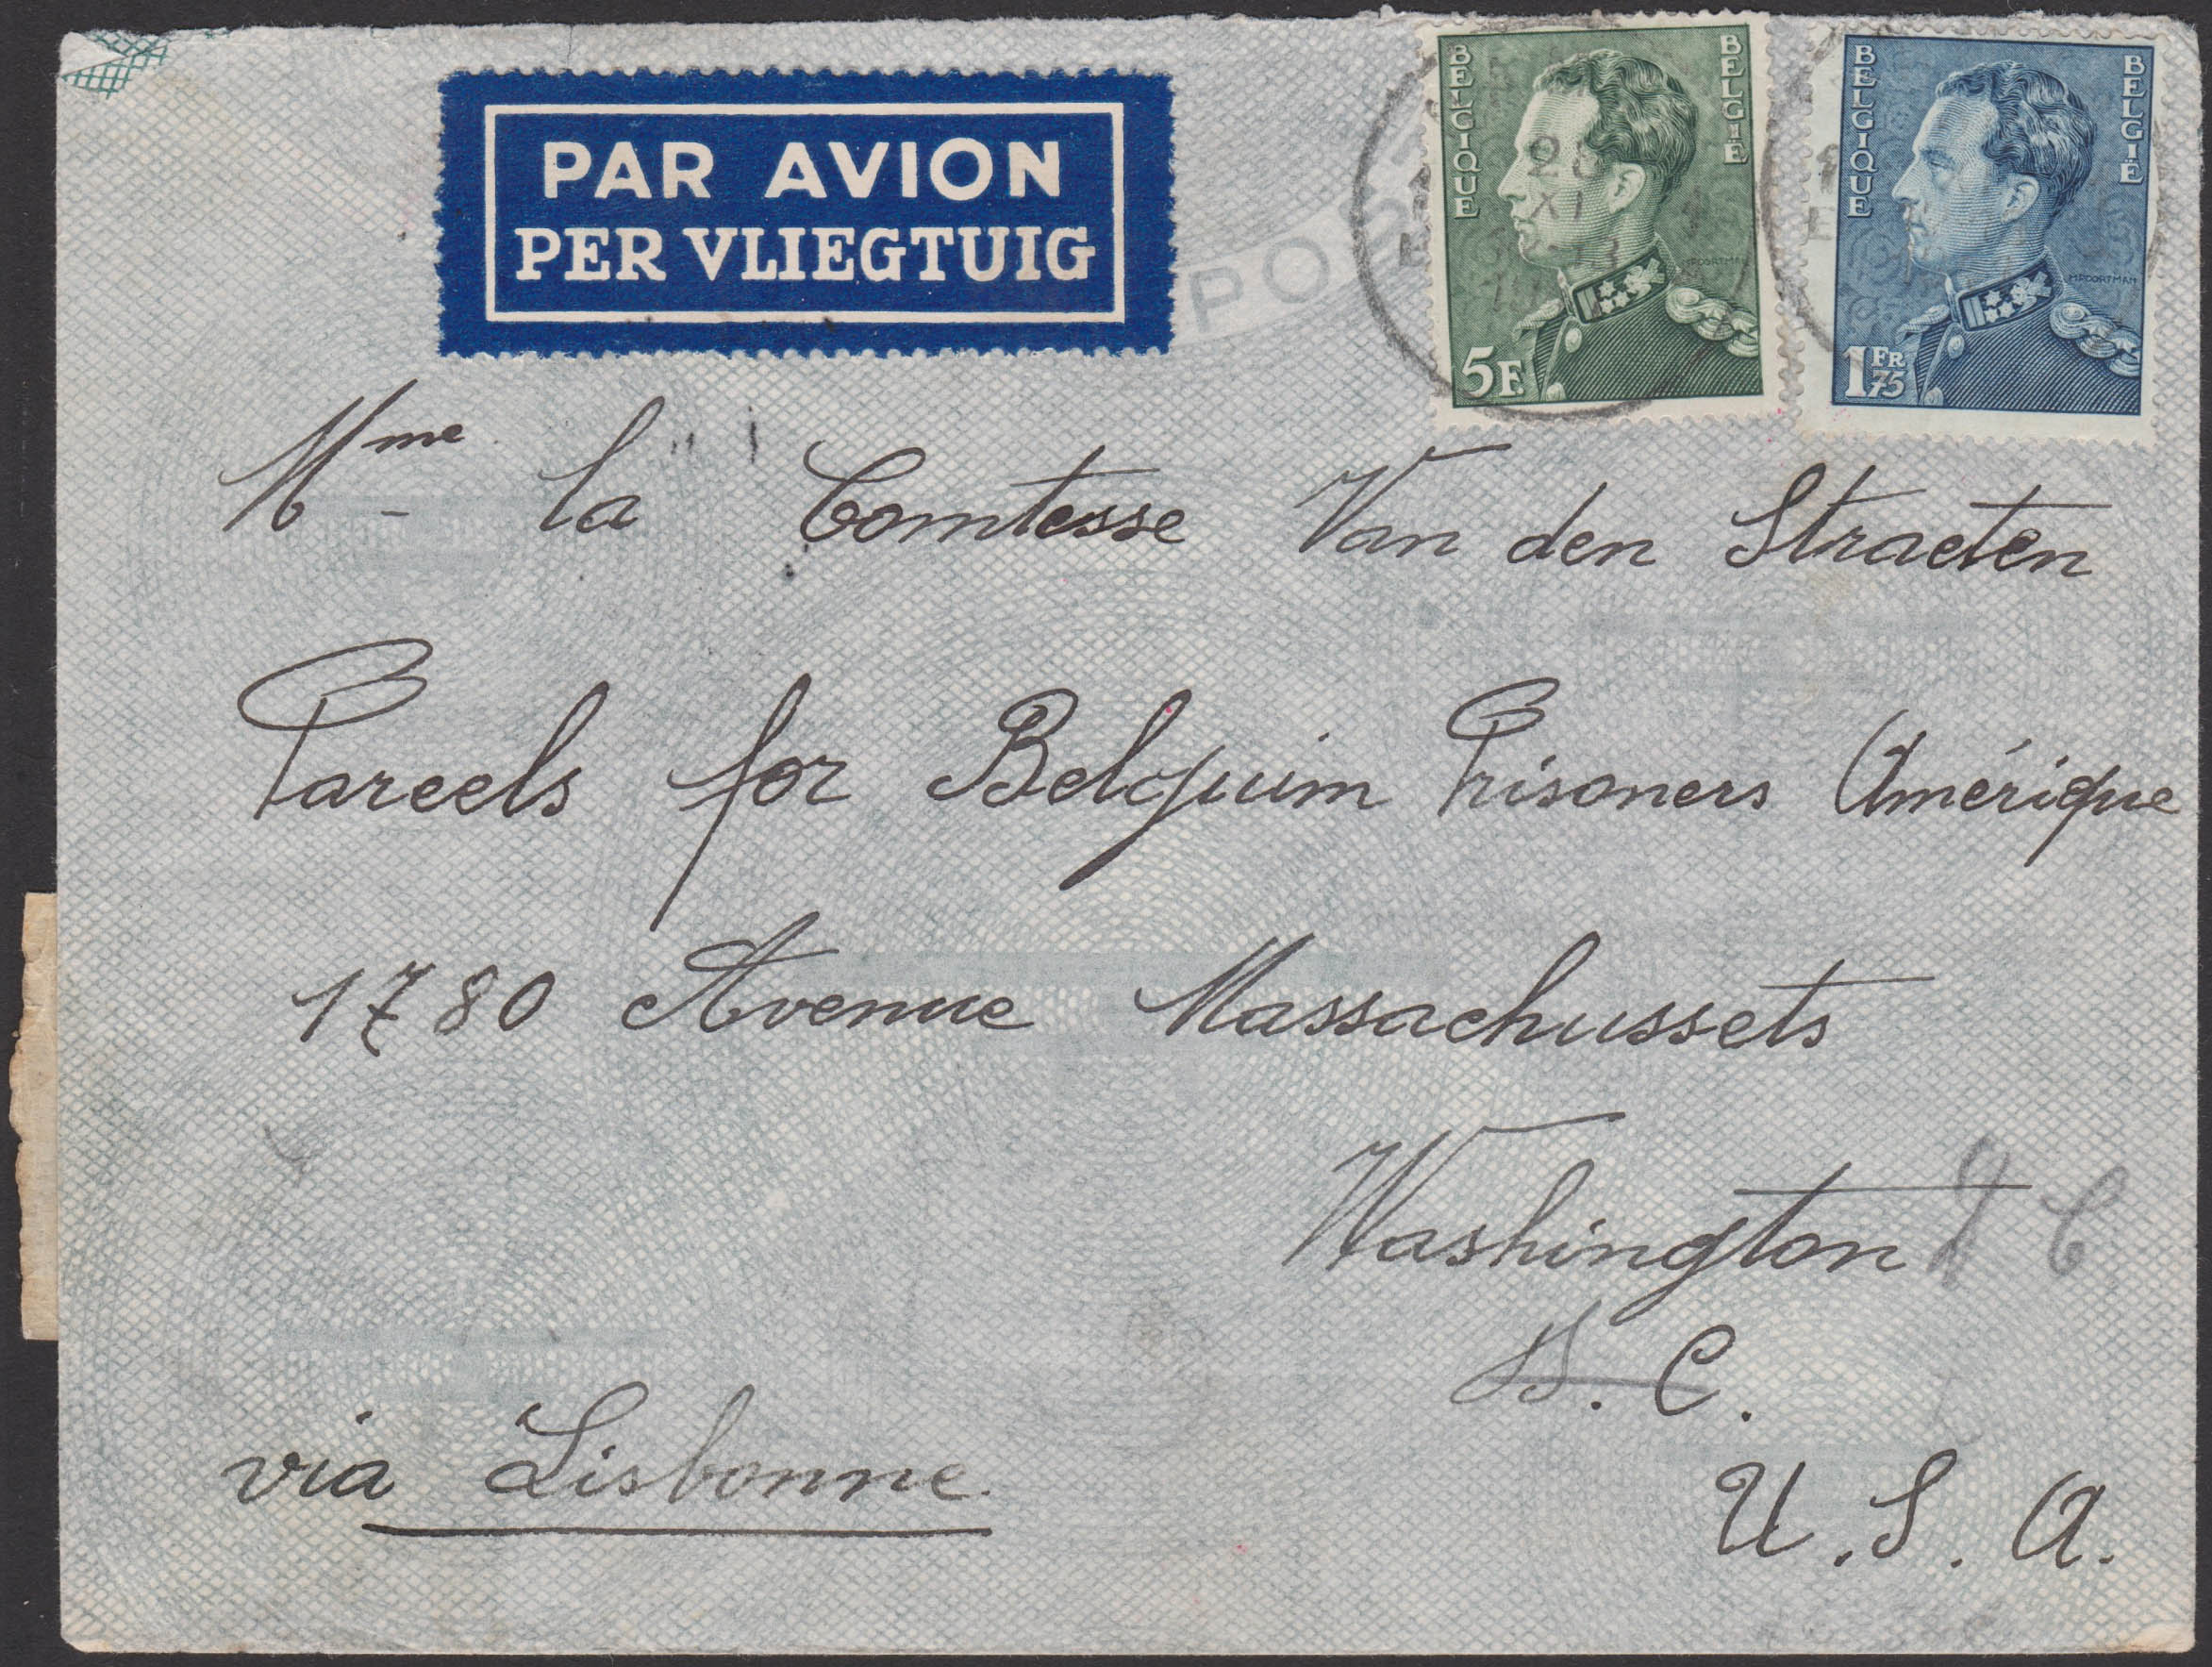 PAR AVION
PER VLIEGTUIG
BELGIQUE
BELGIË
5F.
BELGIQUE
BELGIË
M.POORTMAN
1FR75
XI
Mme la Comtesse Van den Straeten
Parcels for Belguim Prisoners Amérique
1780 Avenue Massachussets
Washington D C
D. C.
U. S. A.
via Lisbonne